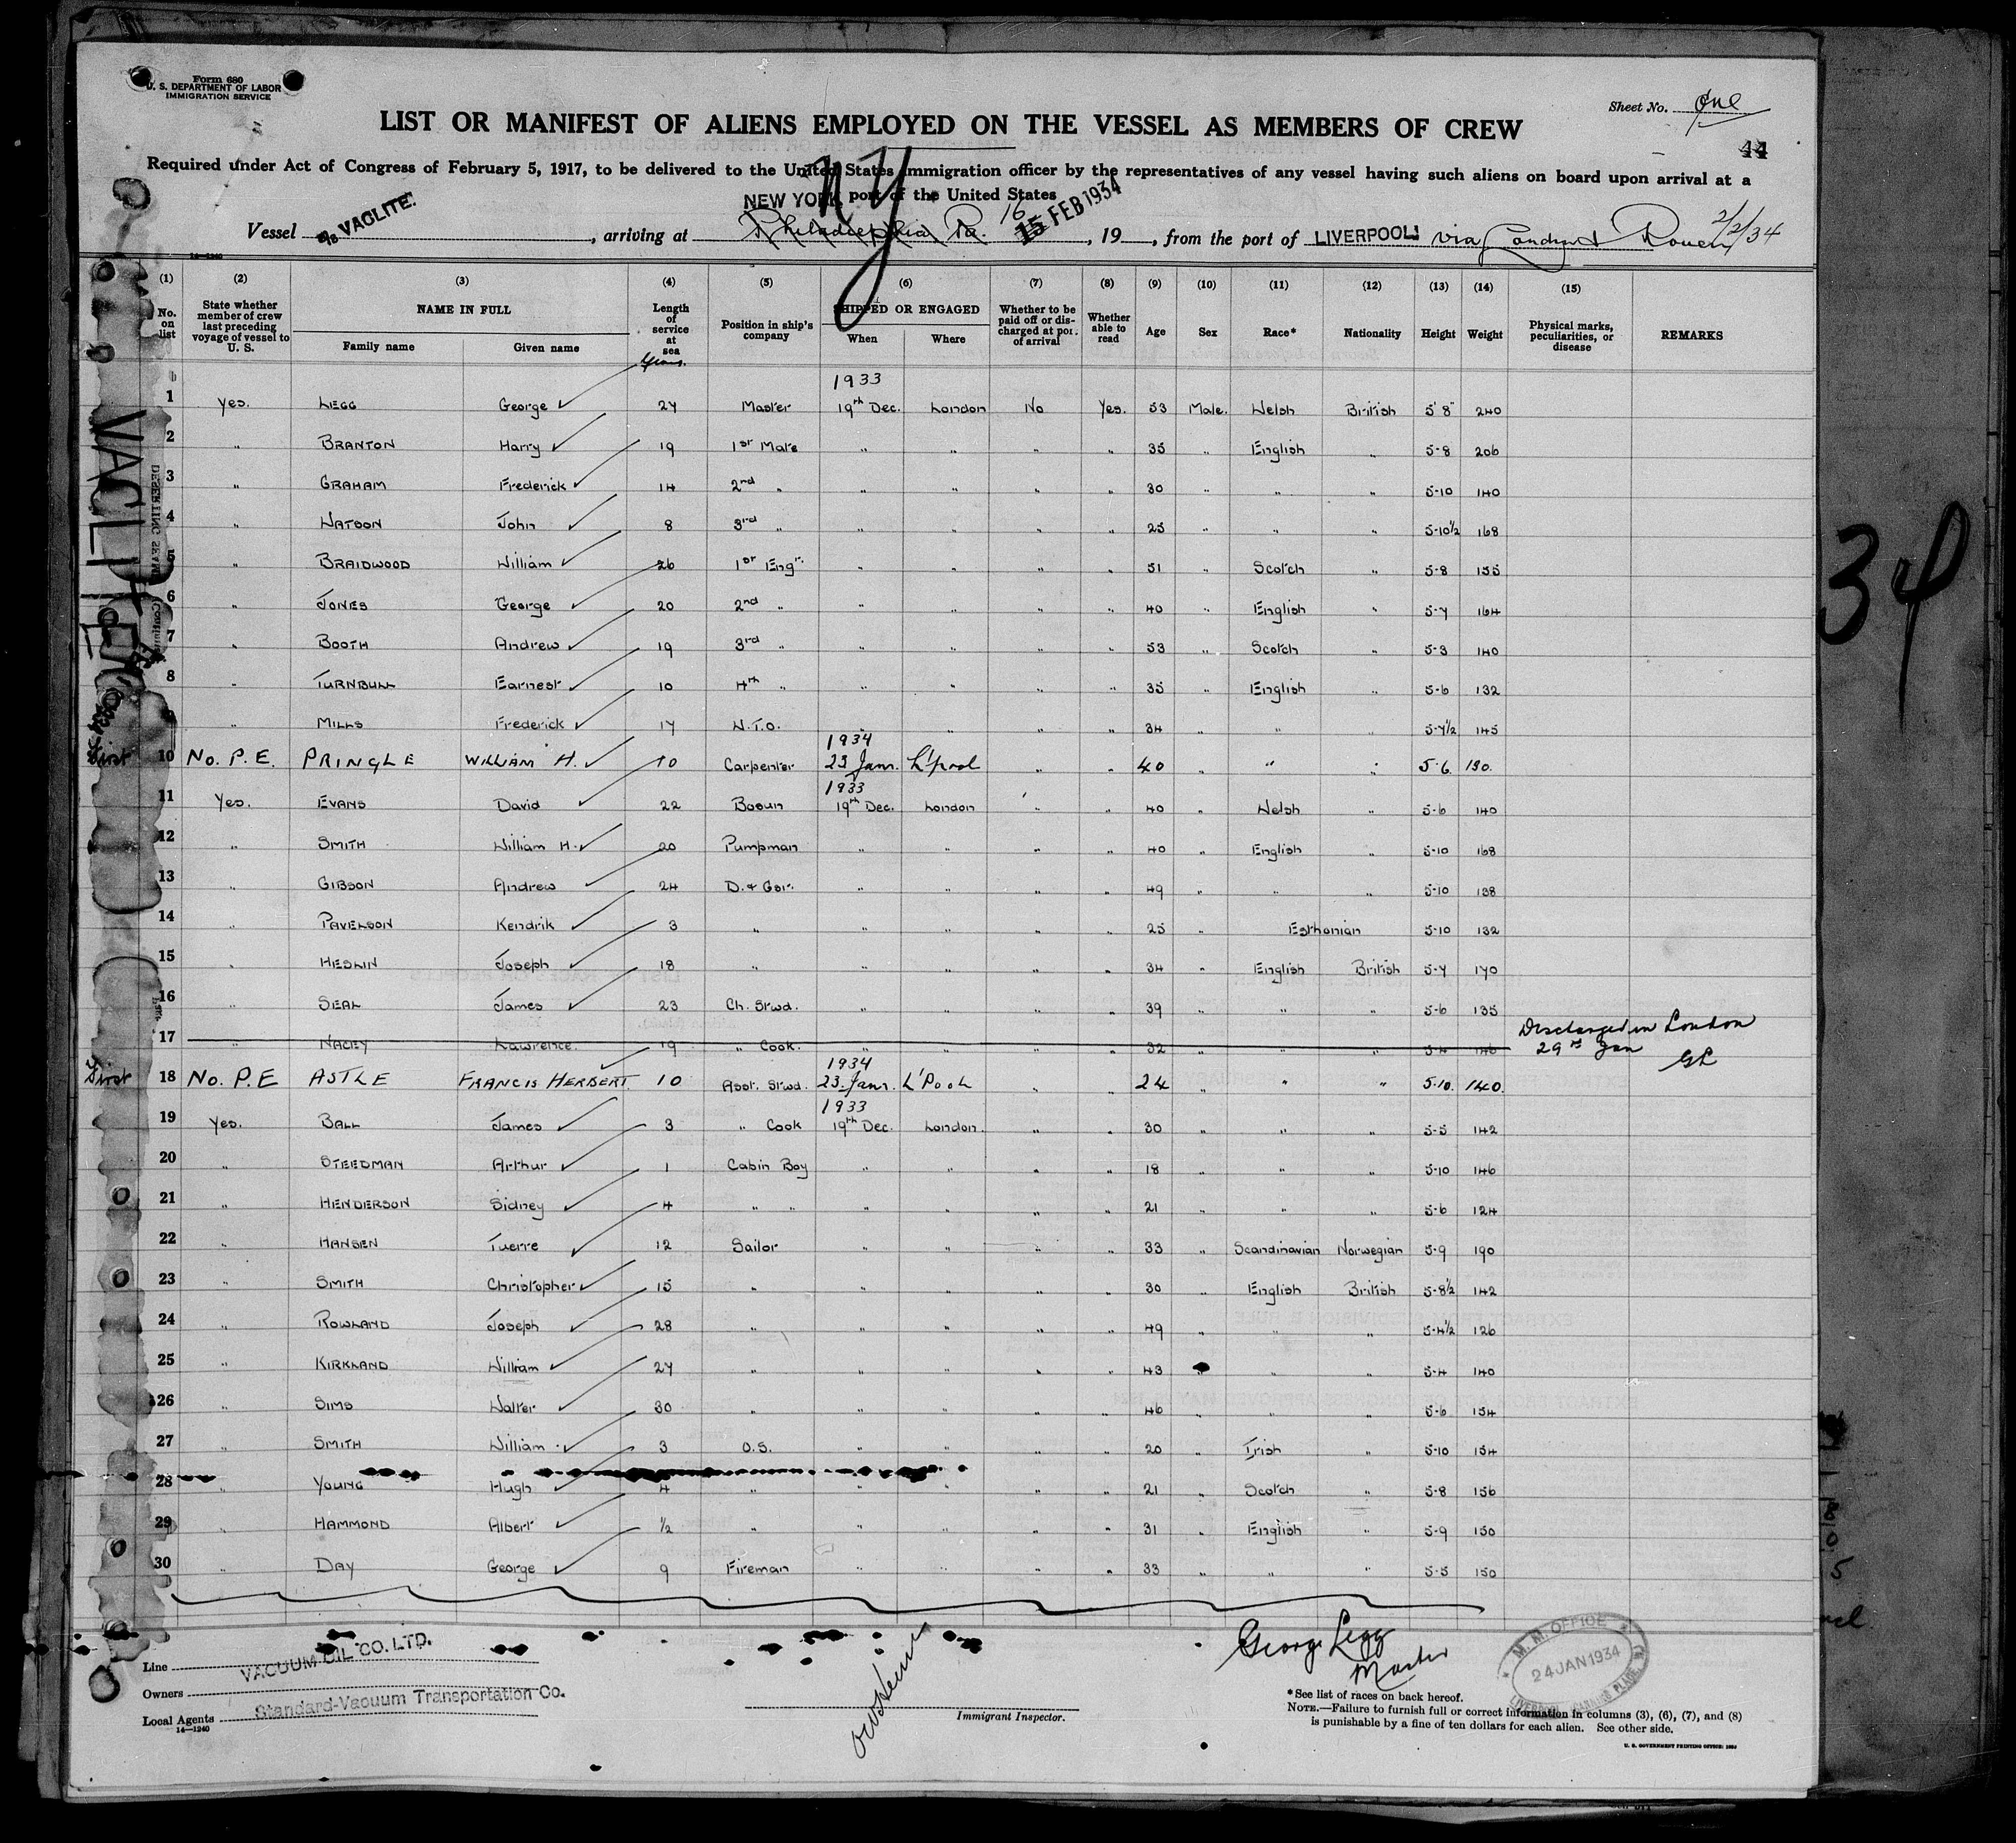 Form 680
U. S. DEPARTMENT OF LABOR
IMMIGRATION SERVICE
Sheet No. One
LIST OR MANIFEST OF ALIENS EMPLOYED ON THE VESSEL AS MEMBERS OF CREW
44
Required under Act of Congress of February 5, 1917, to be delivered to the United States immigration officer by the representatives of any vessel having such aliens on board upon arrival at a
port of the United States
NY
NEW YORK
Vessel S/S VACLITE. , arriving at Philadelphia Pa. 16 15 FEB 1934 , 19 , from the port of LIVERPOOL via London & Rouen 2/2/34
14—1240
(1) (2) (3) (4) (5) (6) (7) (8) (9) (10) (11) (12) (13) (14) (15)
No. on list State whether member of crew last preceding voyage of vessel to U. S. NAME IN FULL Family name Given name Length of service at sea Position in ship's company SHIPPED OR ENGAGED When Where Whether to be paid off or discharged at port of arrival Whether able to read Age Sex Race* Nationality Height Weight Physical marks, peculiarities, or disease REMARKS
Years.
1933
1 Yes. LEGG George 27 Master 19th Dec. London No Yes. 53 Male. Welsh British 5'8" 240
2 " BRANTON Harry 19 1st Mate " " " " 35 " English " 5-8 206
3 " GRAHAM Frederick 14 2nd " " " " " 30 " " " 5-10 140
4 " WATSON John 8 3rd " " " " " 25 " " " 5-10½ 168
5 " BRAIDWOOD William 26 1st Engr. " " " " 51 " Scotch " 5-8 155
6 " JONES George 20 2nd " " " " " 40 " English " 5-7 164
7 " BOOTH Andrew 19 3rd " " " " " 53 " Scotch " 5-3 140
8 " TURNBULL Earnest 10 4th " " " " " 35 " English " 5-6 132
9 " MILLS Frederick 17 W.T.O. " " " " 34 " " " 5-7½ 145
1934
First 10 No. P.E. PRINGLE WILLIAM H. 10 Carpenter 23 Jan. L'pool " " 40 " " " 5.6. 190.
1933
11 Yes. EVANS David 22 Bosun 19th Dec. London " " 40 " Welsh " 5-6 140
12 " SMITH William H. 20 Pumpman " " " " 40 " English " 5-10 168
13 " GIBSON Andrew 24 D. & Gsr. " " " " 49 " " " 5-10 138
14 " PAVELSON Kendrik 3 " " " " " 25 " Esthonian 5-10 132
15 " HESLIN Joseph 18 " " " " " 34 " English British 5-7 170
16 " SEAL James 23 Ch. Stwd. " " " " 39 " " " 5-6 135
17 " NACEY Lawrence 19 " Cook. " " " " 32 " " " 5-4 146 Discharged in London
29th Jan GL
1934
First 18 No. P.E ASTLE FRANCIS HERBERT. 10 Asst. Stwd. 23. Jan. L'POOL " " 24 " " " 5.10. 140.
1933
19 Yes. BALL James 3 " Cook 19th Dec. London. " " 30 " " " 5-5 142
20 " STEEDMAN Arthur 1 Cabin Boy " " " " 18 " " " 5-10 146
21 " HENDERSON Sidney 4 " " " " " " 21 " " " 5-6 124
22 " HANSEN Tuerre 12 Sailor " " " " 33 " Scandinavian Norwegian 5-9 190
23 " SMITH Christopher 15 " " " " " 30 " English British 5-8½ 142
24 " ROWLAND Joseph 28 " " " " " 49 " " " 5-4½ 126
25 " KIRKLAND William 27 " " " " " 43 " " " 5-4 140
26 " SIMS Walter 30 " " " " " 46 " " " 5-6 154
27 " SMITH William 3 O.S. " " " " 20 " Irish " 5-10 154
28 " YOUNG Hugh 4 " " " " " 21 " Scotch " 5-8 156
29 " HAMMOND Albert ½ " " " " " 31 " English " 5-9 150
30 " DAY George 9 Fireman " " " " 33 " " " 5-5 150
34
Line VACUUM OIL CO. LTD.
Owners
Local Agents Standard-Vacuum Transportation Co.
14—1240
Immigrant Inspector.
George Legg
Master
M. M. OFFICE
24 JAN 1934
LIVERPOOL
*See list of races on back hereof.
NOTE.—Failure to furnish full or correct information in columns (3), (6), (7), and (8)
is punishable by a fine of ten dollars for each alien. See other side.
U. S. GOVERNMENT PRINTING OFFICE